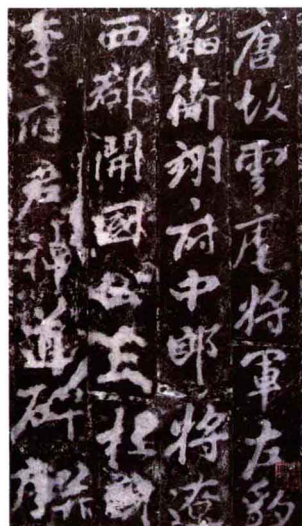 唐故雲麾将軍左豹
韜衛翊府中郎将遼
西郡開國公上柱國
李府君神道碑并序